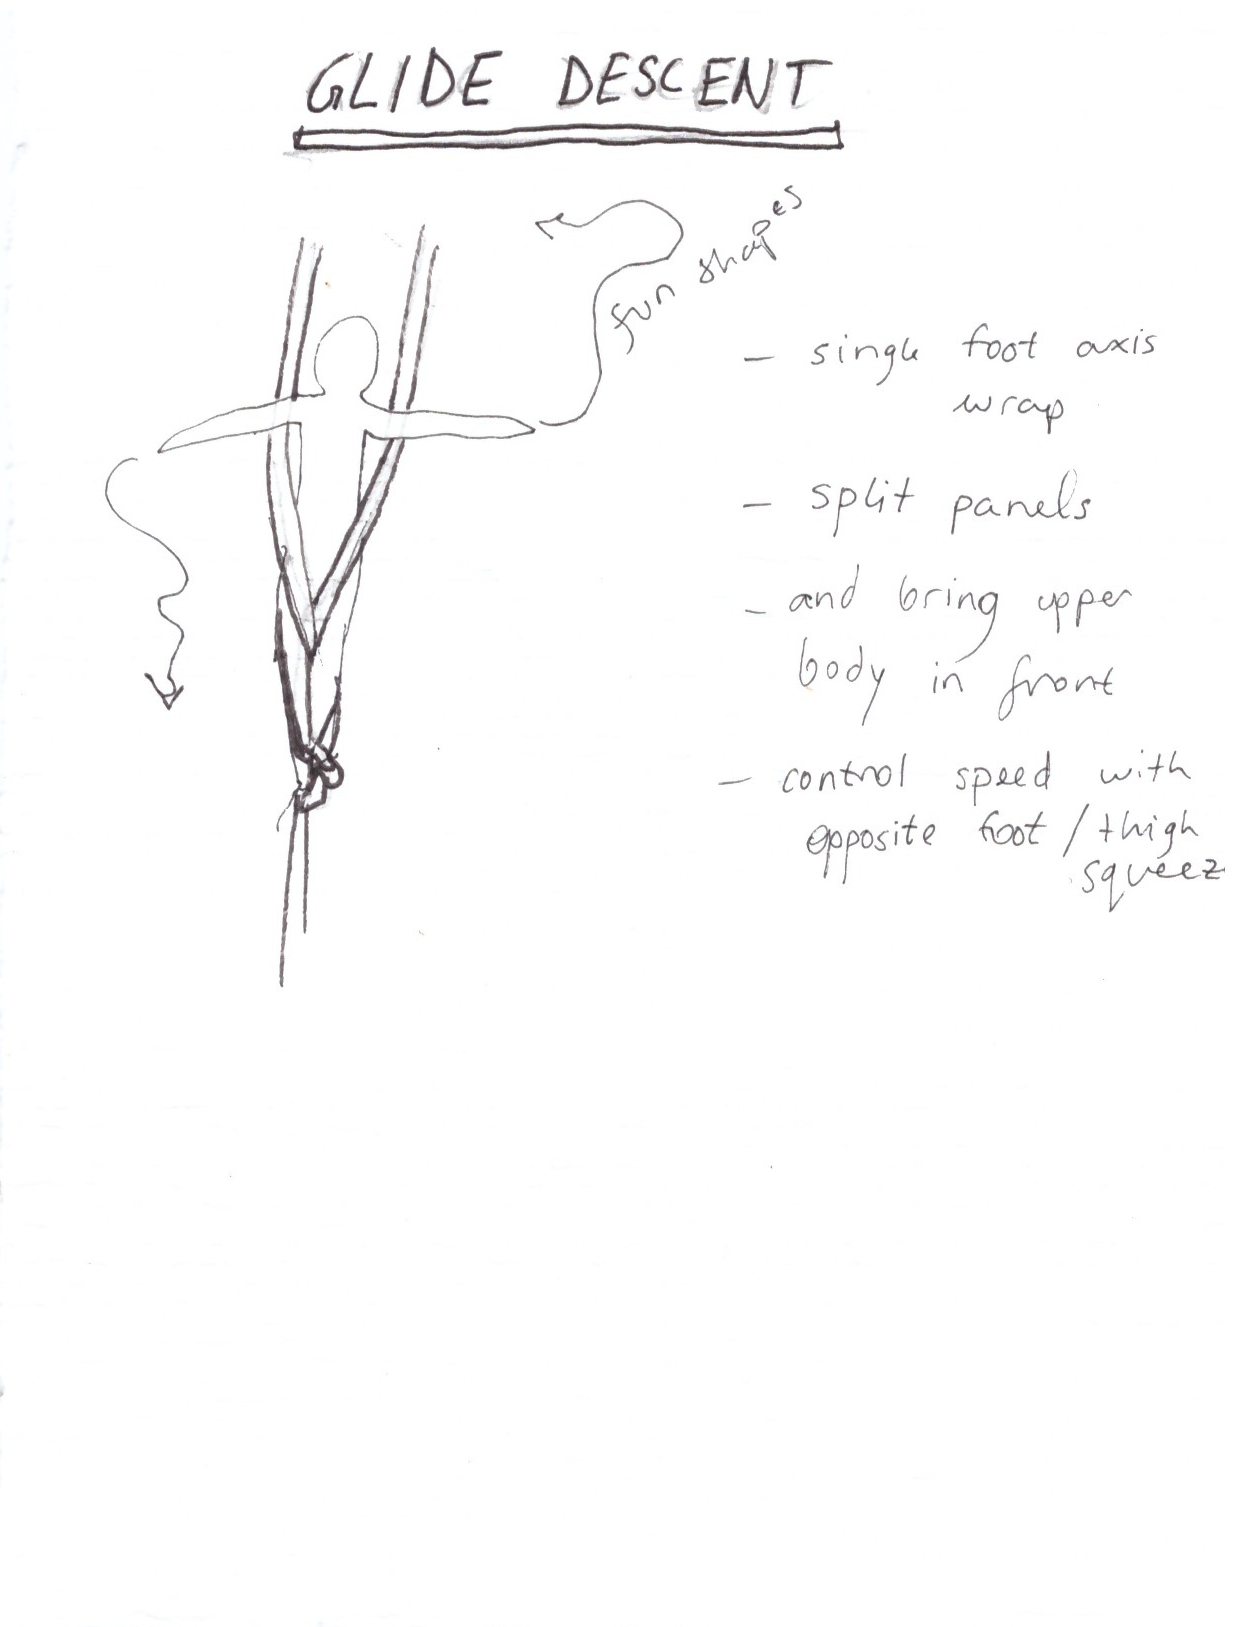 GLIDE DESCENT
fun shapes
- single foot axis
wrap
- split panels
- and bring upper
body in front
- control speed with
opposite foot / thigh
squeez